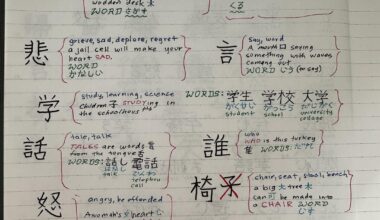 wooden desk 木
WORD さかす
くる
悲
grieve, sad, deplore, regret
a jail cell will make your
heart SAD.
WORD
かなしい
言
Say, word
A mouth 口 saying
something with waves
coming out
WORD いう (to say)
学
study, learning, science
Children 子 STUDYing in
the schoolhouse
WORDS: 学生 学校 大学
がくせい がっこう だいがく
student school university
college
話
tale, talk
TALES are words 言
from the tongue 舌
WORDS: 話し 電話
はなし でんわ
telephone
call
誰
who
WHO is this turkey
隹 WORD だれ
怒
angry, be offended
heart 心
椅
chair, seat, stool, bench
a big 大 tree 木
can 可 be made into
a CHAIR WORD
いす